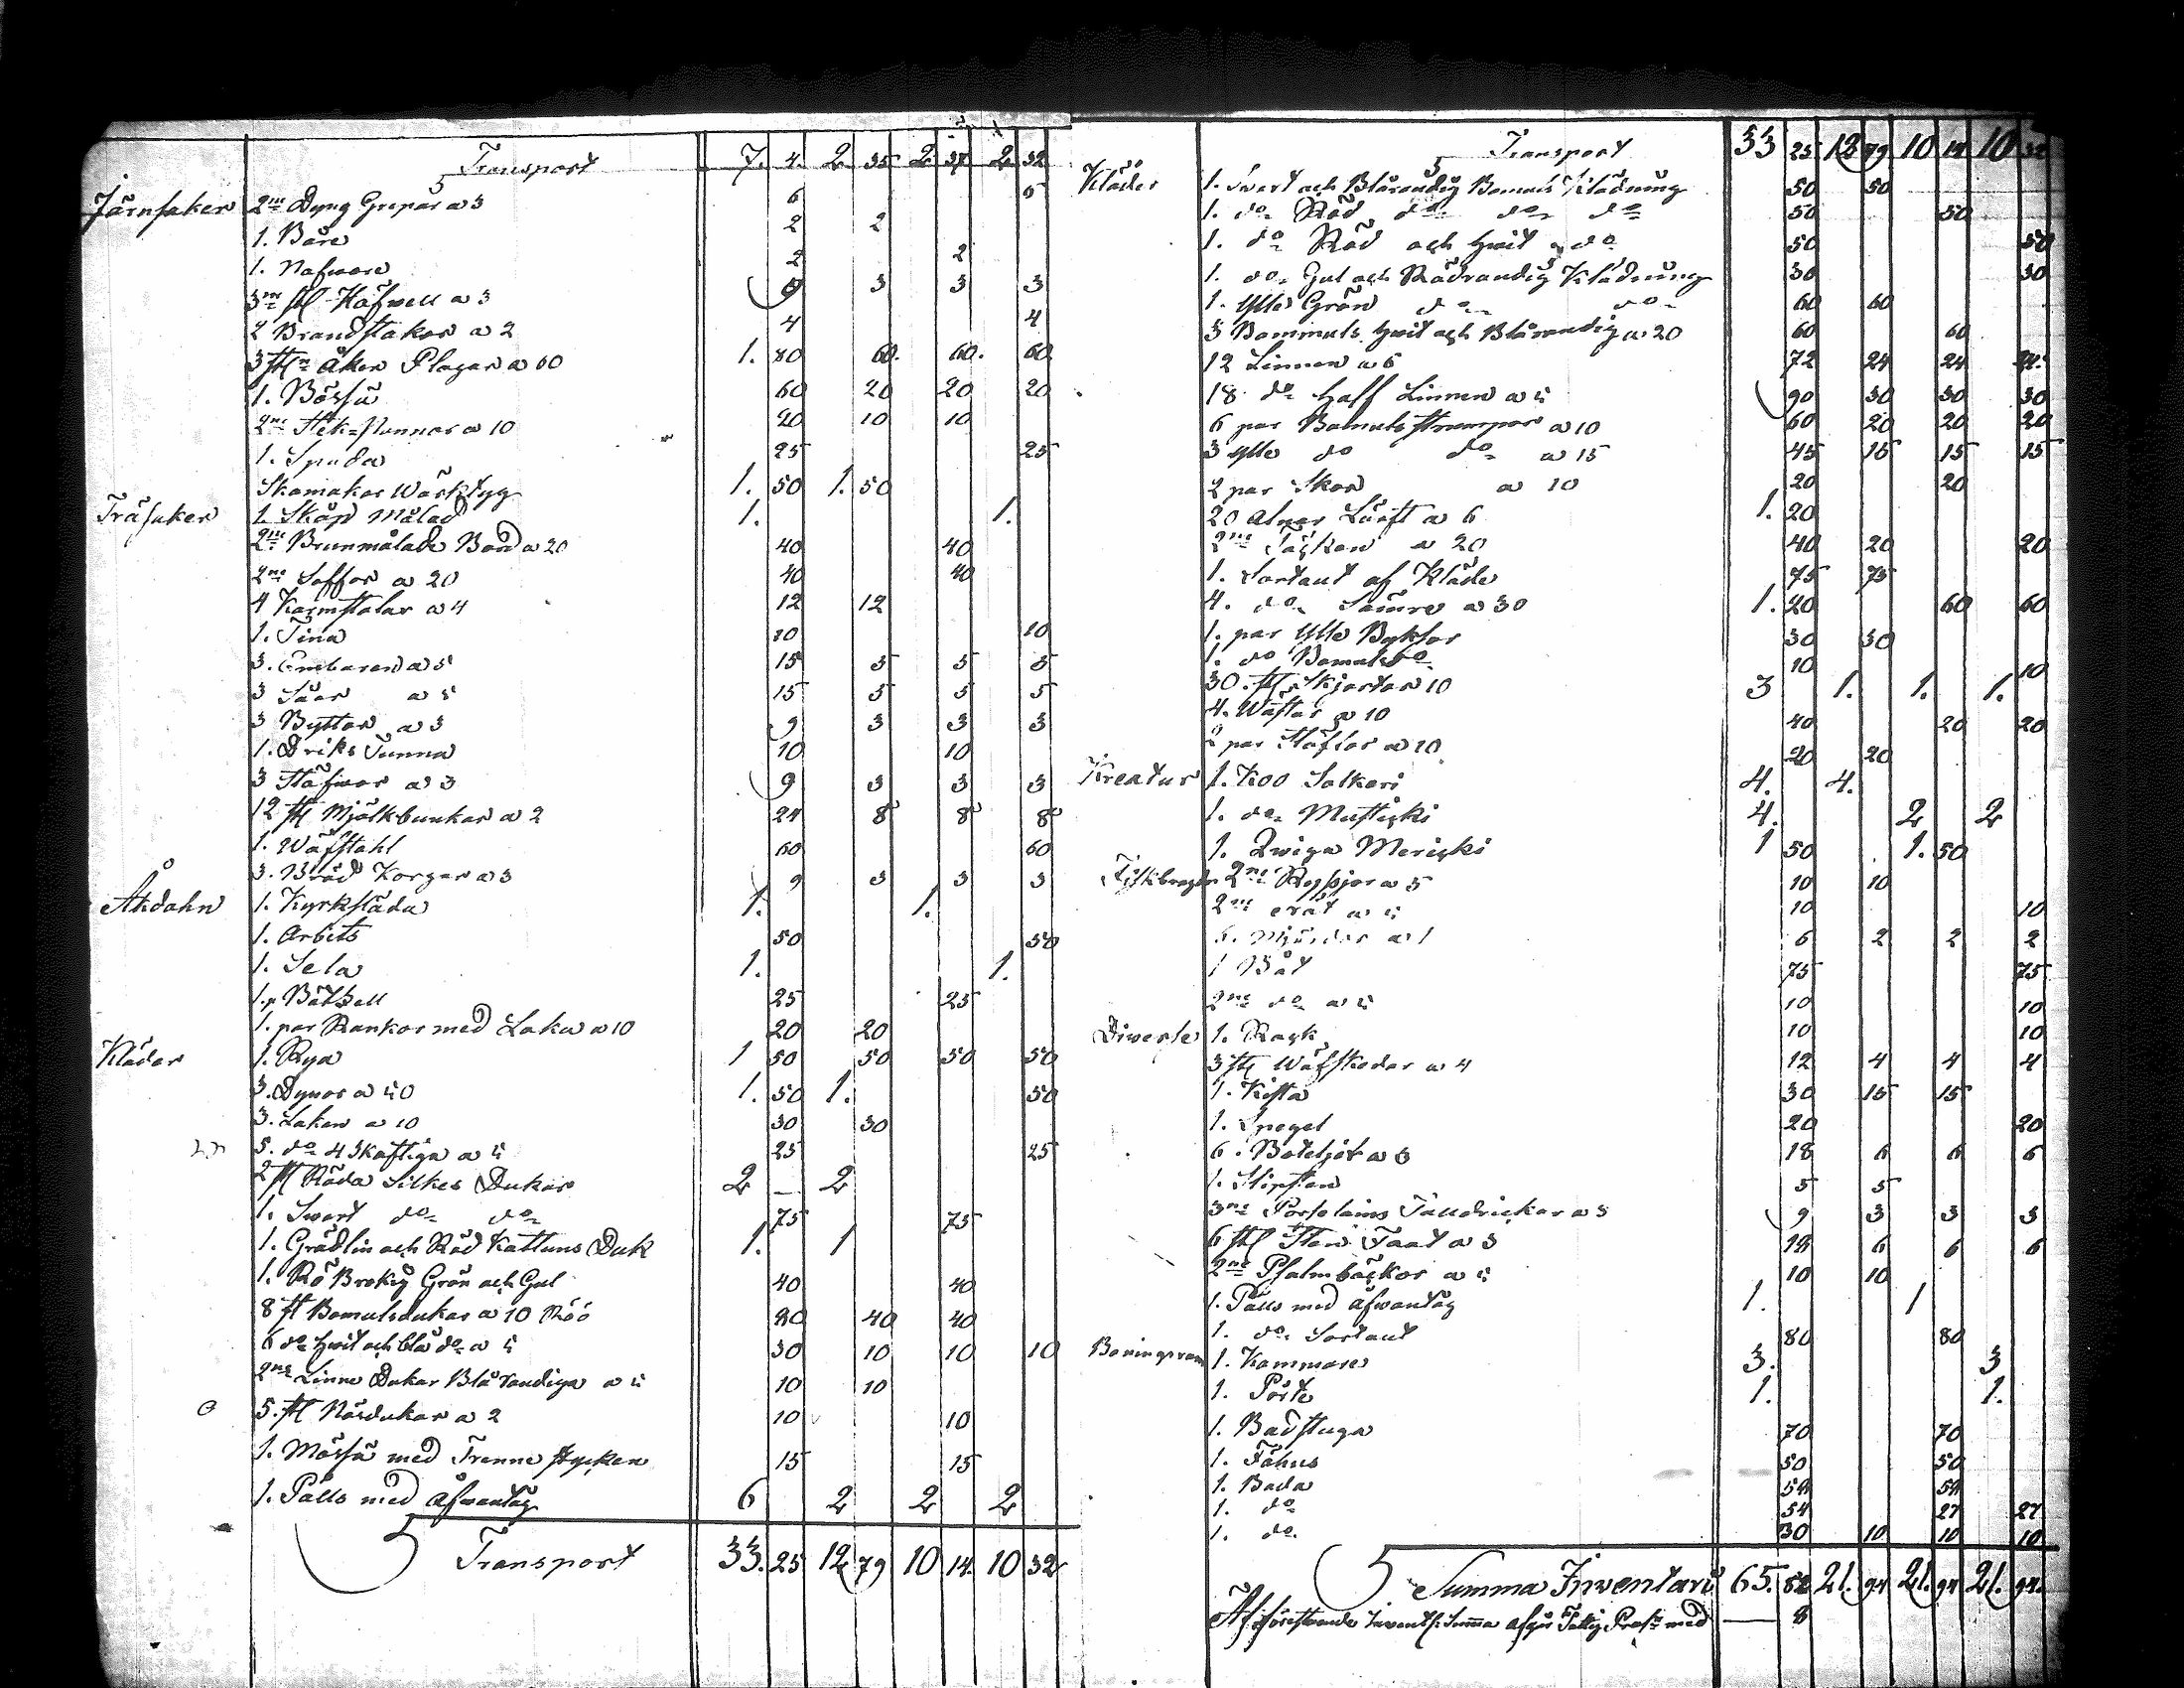 Transport 7. 4. 2 35 2 37 2 32
Järnsaker 2ne Dyng Grepar a 3 6 6
1. Bäre 2 2
1. Nafware 2 2
3ne st Häfwell a 3 9 3 3 3
2 Brandstakar a 2 4 4
3 st Åker Plogar a 60 1. 80 60. 60. 60
1. Bössä 60 20 20 20
2ne Stek-Pannor a 10 20 10 10
1. Spada 25 25
Skomakar Wärktyg 1. 50 1. 50
Träsaker 1. Skåp Målad 1. 1.
2ne Brunmålade Bord a 20 40 40
2ne Soffor a 20 40 40
4 Karmstolar a 4 12 12
1. Tina 10 10
3. Embaren a 5 15 5 5 5
3 Såar a 5 15 5 5 5
3 Byttor a 3 9 3 3 3
1. Driks Tunna 10 10
3 Stäfwor a 3 9 3 3 3
12 st Mjölkbunkar a 2 24 8 8 8
1. Wäfstahl 60 60
3. Bröd Korgar a 3 9 3 3 3
Åkdohn 1. Kyrksläda 1. 1.
1. Arbets 50 50
1. Sela 1. 1.
1. Bätsell 25 25
1. par Rankor med Laka a 10 20 20
Kläder 1. Rya 1 50 50 50 50
3. Dynor a 50 1. 50 1. 50
3. Lakan a 10 30 30
5. do 4 Skaftiga a 5 25 25
2 st Röda Silkes Dukar 2 — 2
1. Swart do do 75 75
1. Grädlin och Röd Kattuns Duk 1. 1
1. Rö Brokig Grön och Gul 40 40
8 st Bomulsdukar a 10 80 40 40
6 do Hwit och blå do a 5 30 10 10 10
2ne Linne Dukar Blårandiga a 5 10 10
5. st Näsdukar a 2 10 10
1. Mössä med Trenne stycken 15 15
1. Påls med åfwantåg 6 2 2 2
Transport 33. 25 12 79 10 14. 10 32
Transport 33 25 12 79 10 14 10 32
Kläder 1. Swart och Blårandig Bomuls Klädning 50 50
1. do Röd do do do 50 50
1. do Röd och Hwit do 50 50
1. do Gul och Rödrandig Klädning 30 30
1. Ylle Grön do do 60 60
3 Bommuls Hwit och Blårandig a 20 60 60
12 Linnen a 6 72 24 24 24.
18 do Half Linnen a 5 90 30 30 30
6 par Bomuls strumpor a 10 60 20 20 20
3 ylle do do a 15 45 15 15 15
2 par Skor a 10 20 20
20 Alnar Lärft a 6 1. 20
2ne Täcken a 20 40 20 20
1. Sortaut af Kläde 75 75
4. do Sämre a 30 1. 20 60 60
1. par Ylle Byksor 30 30
1. do Bomuls do 10 10
30. st Skjortor 10 3 1. 1. 1.
4. Wästar a 10 40 20 20
2 par Stöflor a 10 20 20
Kreatur 1. Koo Salkari 4. 4.
1. do Musticki 4. 2 2
1. Qwiga Mericki 1 50 1. 50
2ne Ryssjor a 5 10 10
2ne a 5 10 10
6. Mjärdar a 1 6 2 2 2
1 Båt 75 75
2ne do a 5 10 10
Diverse 1. Rack 10 10
3 st Wäfskedar a 4 12 4 4 4
1. Kista 30 15 15
1. Spegel 20 20
6. Boteljör a 3 18 6 6 6
1. Slipsten 5 5
3ne Porslains Talldrickar a 3 9 3 3 3
6 st Sten Faat a 3 18 6 6 6
2ne Psalmböckor a 5 10 10
1. Påls med åfwantåg 1. 1
1. do Sortaut 80 80
Boningsrum 1. Kammare 3. 3
1. Pörte 1. 1.
1. Badstuga 70 70
1. Fähus 50 50
1. Boda 54 54
1. do 54 27 27
1. do 30 10 10 10
Summa Inventari 65. 82 21. 94 21. 94 21. 94.
Af förestående Summa afgår Fattig med — 8